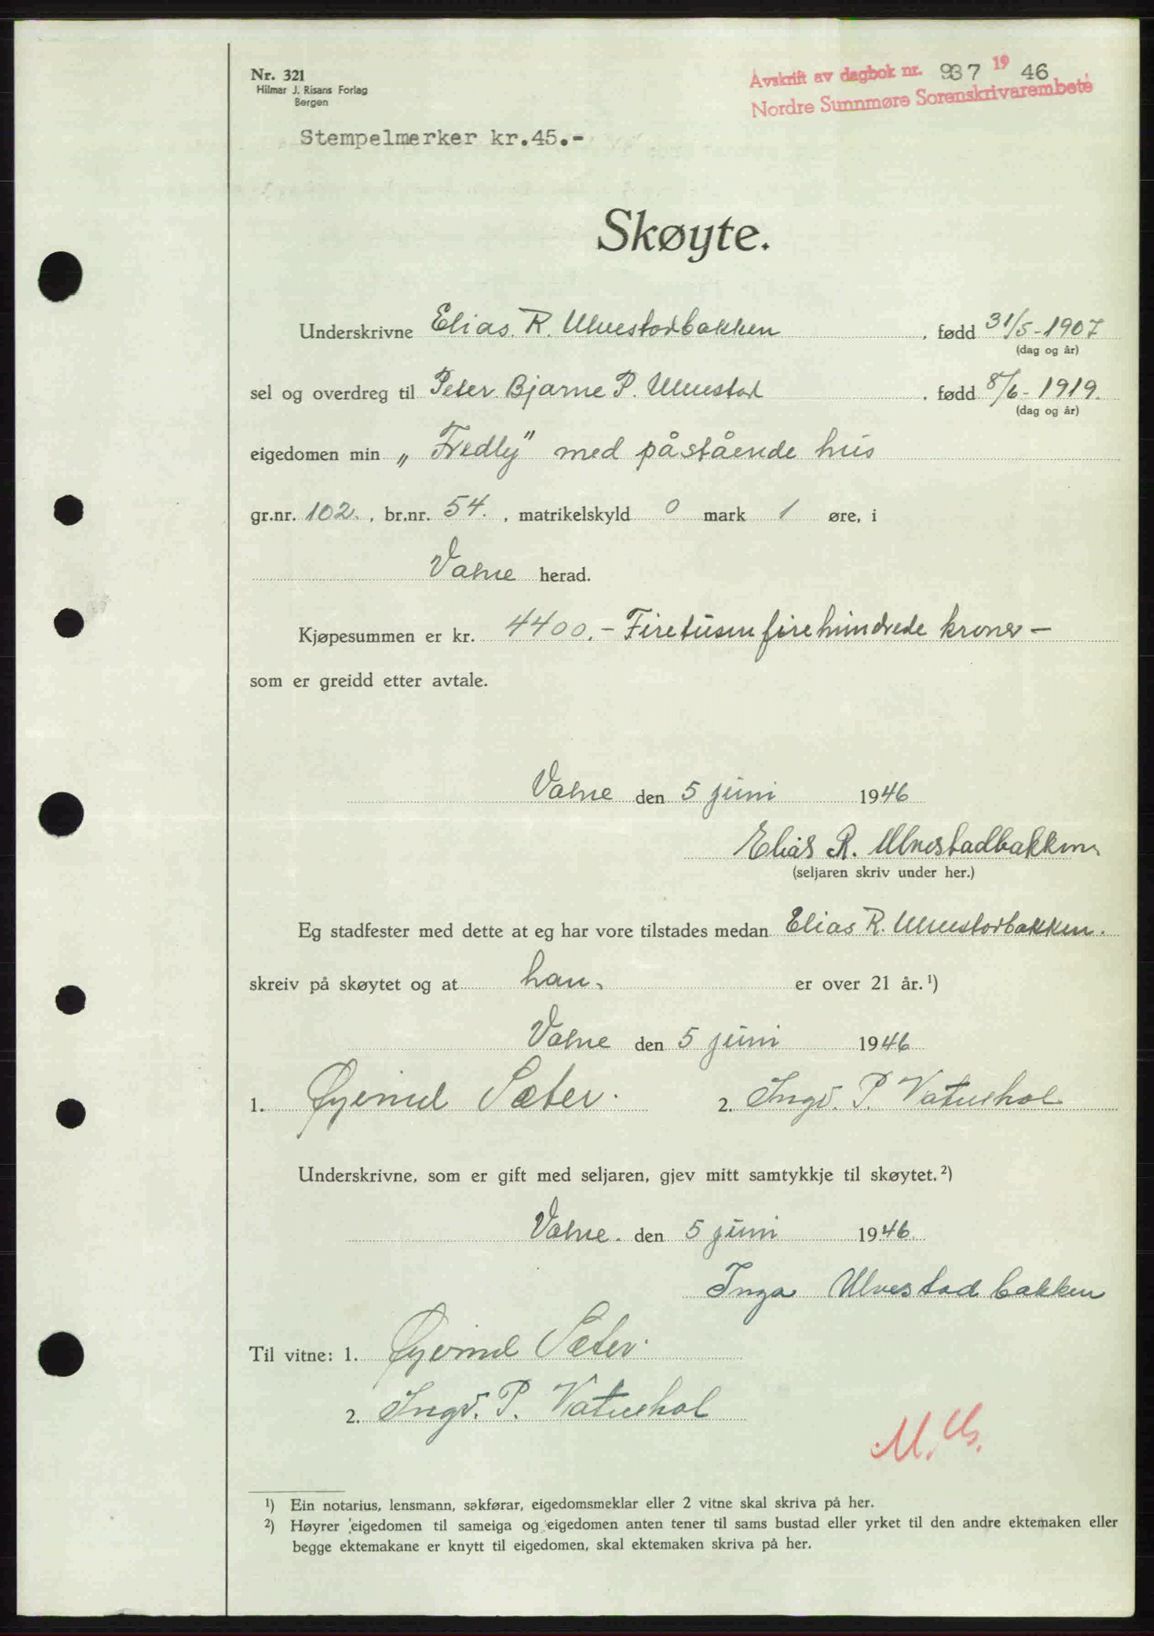 Nr. 321
Hilmar J. Risans Forlag
Bergen
Avskrift av dagbok nr. 937 1946
Nordre Sunnmøre Sorenskrivarembete
Stempelmerker kr.45.-
Skøyte.
Underskrivne Elias R. Ulvestadbakken, fødd 31/5-1907
(dag og år)
sel og overdreg til Peter Bjarne P. Ulvestad, fødd 8/6-1919.
(dag og år)
eigedomen min „Fredly" med påstående hus
gr.nr. 102., br.nr. 54., matrikelskyld 0 mark 1 øre, i
Vatne herad.
Kjøpesummen er kr. 4400.- Firetusen firehundrede kroner -
som er greidd etter avtale.
Vatne den 5 juni 1946
Elias R. Ulvestadbakken
(seljaren skriv under her.)
Eg stadfester med dette at eg har vore tilstades medan Elias R. Ulvestadbakken.
skreiv på skøytet og at han, er over 21 år.¹)
Vatne den 5 juni 1946
1. Øyvind Sæter. 2. Ingv. P. Vatnehol
Underskrivne, som er gift med seljaren, gjev mitt samtykkje til skøytet.²)
Vatne. den 5 juni 1946.
Inga Ulvestadbakken
Til vitne: 1. Øyvind Sæter.
2. Ingv. P. Vatnehol
¹) Ein notarius, lensmann, sakførar, eigedomsmeklar eller 2 vitne skal skriva på her.
²) Høyrer eigedomen til sameiga og eigedomen anten tener til sams bustad eller yrket til den andre ektemaken eller
begge ektemakane er knytt til eigedomen, skal ektemaken skriva på her.